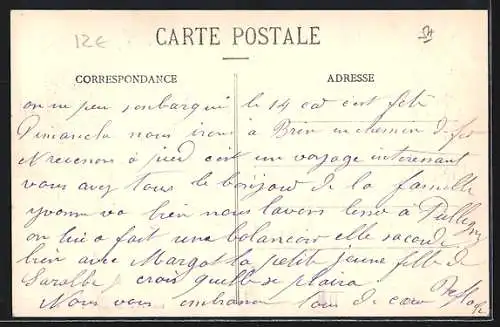 12€
CARTE POSTALE
CORRESPONDANCE
ADRESSE
on ne peu s'enbarqué le 14 car c'est fête
Dimanche nous irons à Brin en chemin de fer
et revenons à pied c'est un voyage interessant
vous avez tous le bonjour de la famille
yvonne va bien nous l'avons laissé à
on lui a fait une balancoir elle
bien avec Margot la petite jeune fille de
crois quelle se plaira
Nous vous embrasson tous de cœur